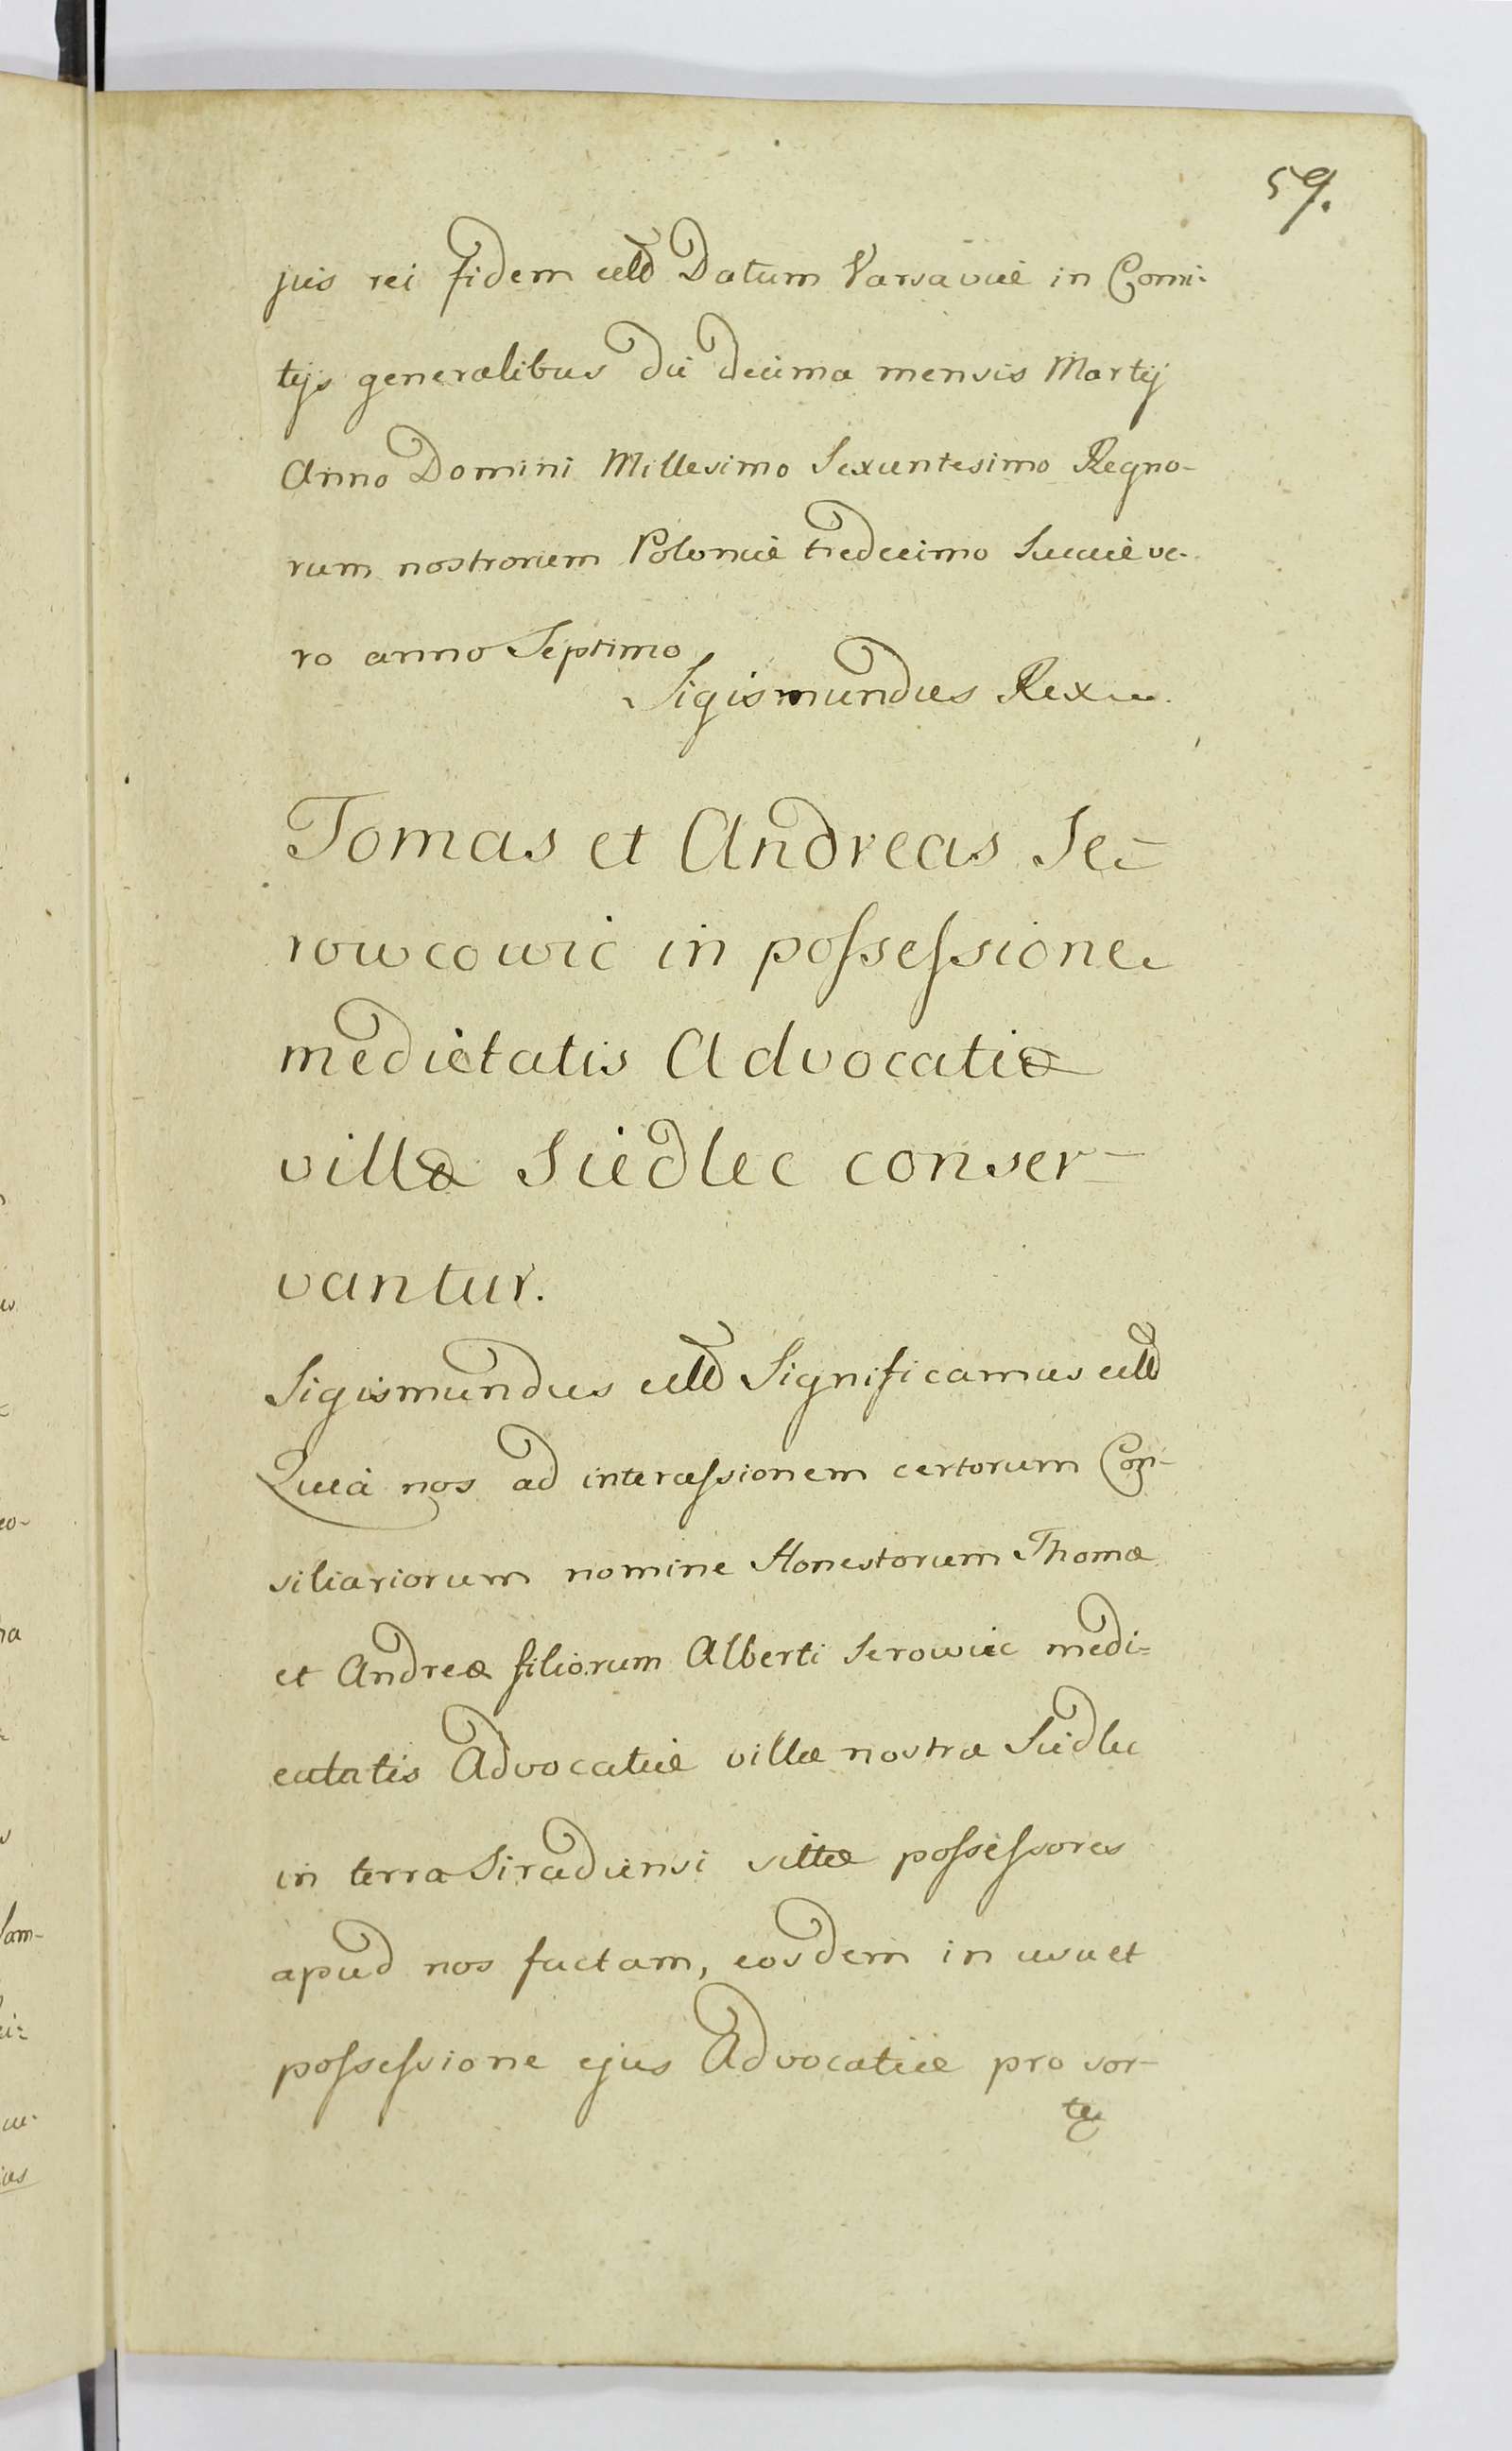 59.
jus rei fidem etc Datum Varsaviæ in Comi-
tijs generalibus die decima mensis Martij
Anno Domini Millesimo Sexcentesimo Regno-
rum nostrorum Poloniæ tredecimo Sueciæ ve-
ro anno Septimo
Sigismundus Rex
Tomas et Andreas Se-
rowcowic in possessione
medietatis Advocatiæ
villæ Siedlec conser-
vantur.
Sigismundus etc Significamus etc
Quia nos ad intercessionem certorum Con-
siliariorum nomine Honestorum Thomæ
et Andreæ filiorum Alberti Serowiec medi-
etatis Advocatiæ villæ nostræ Siedlec
in terra Siradiensi sittæ possessores
apud nos factam, eosdem in usu et
possessione ejus Advocatiæ pro sor-
te